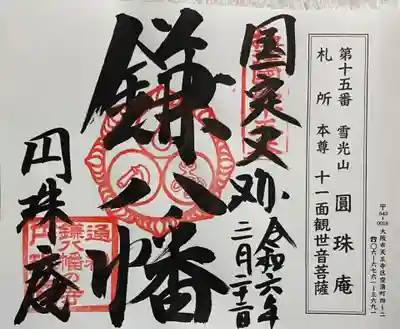 第十五番 雪光山 圓珠庵
札所本尊 十一面観世音菩薩
〒543-0018 大阪市天王寺区空清町四-二
☎〇六-六七六一-三六九一
国定
令和六年
鎌八幡
円珠庵
通称
鎌八幡の寺
円珠庵